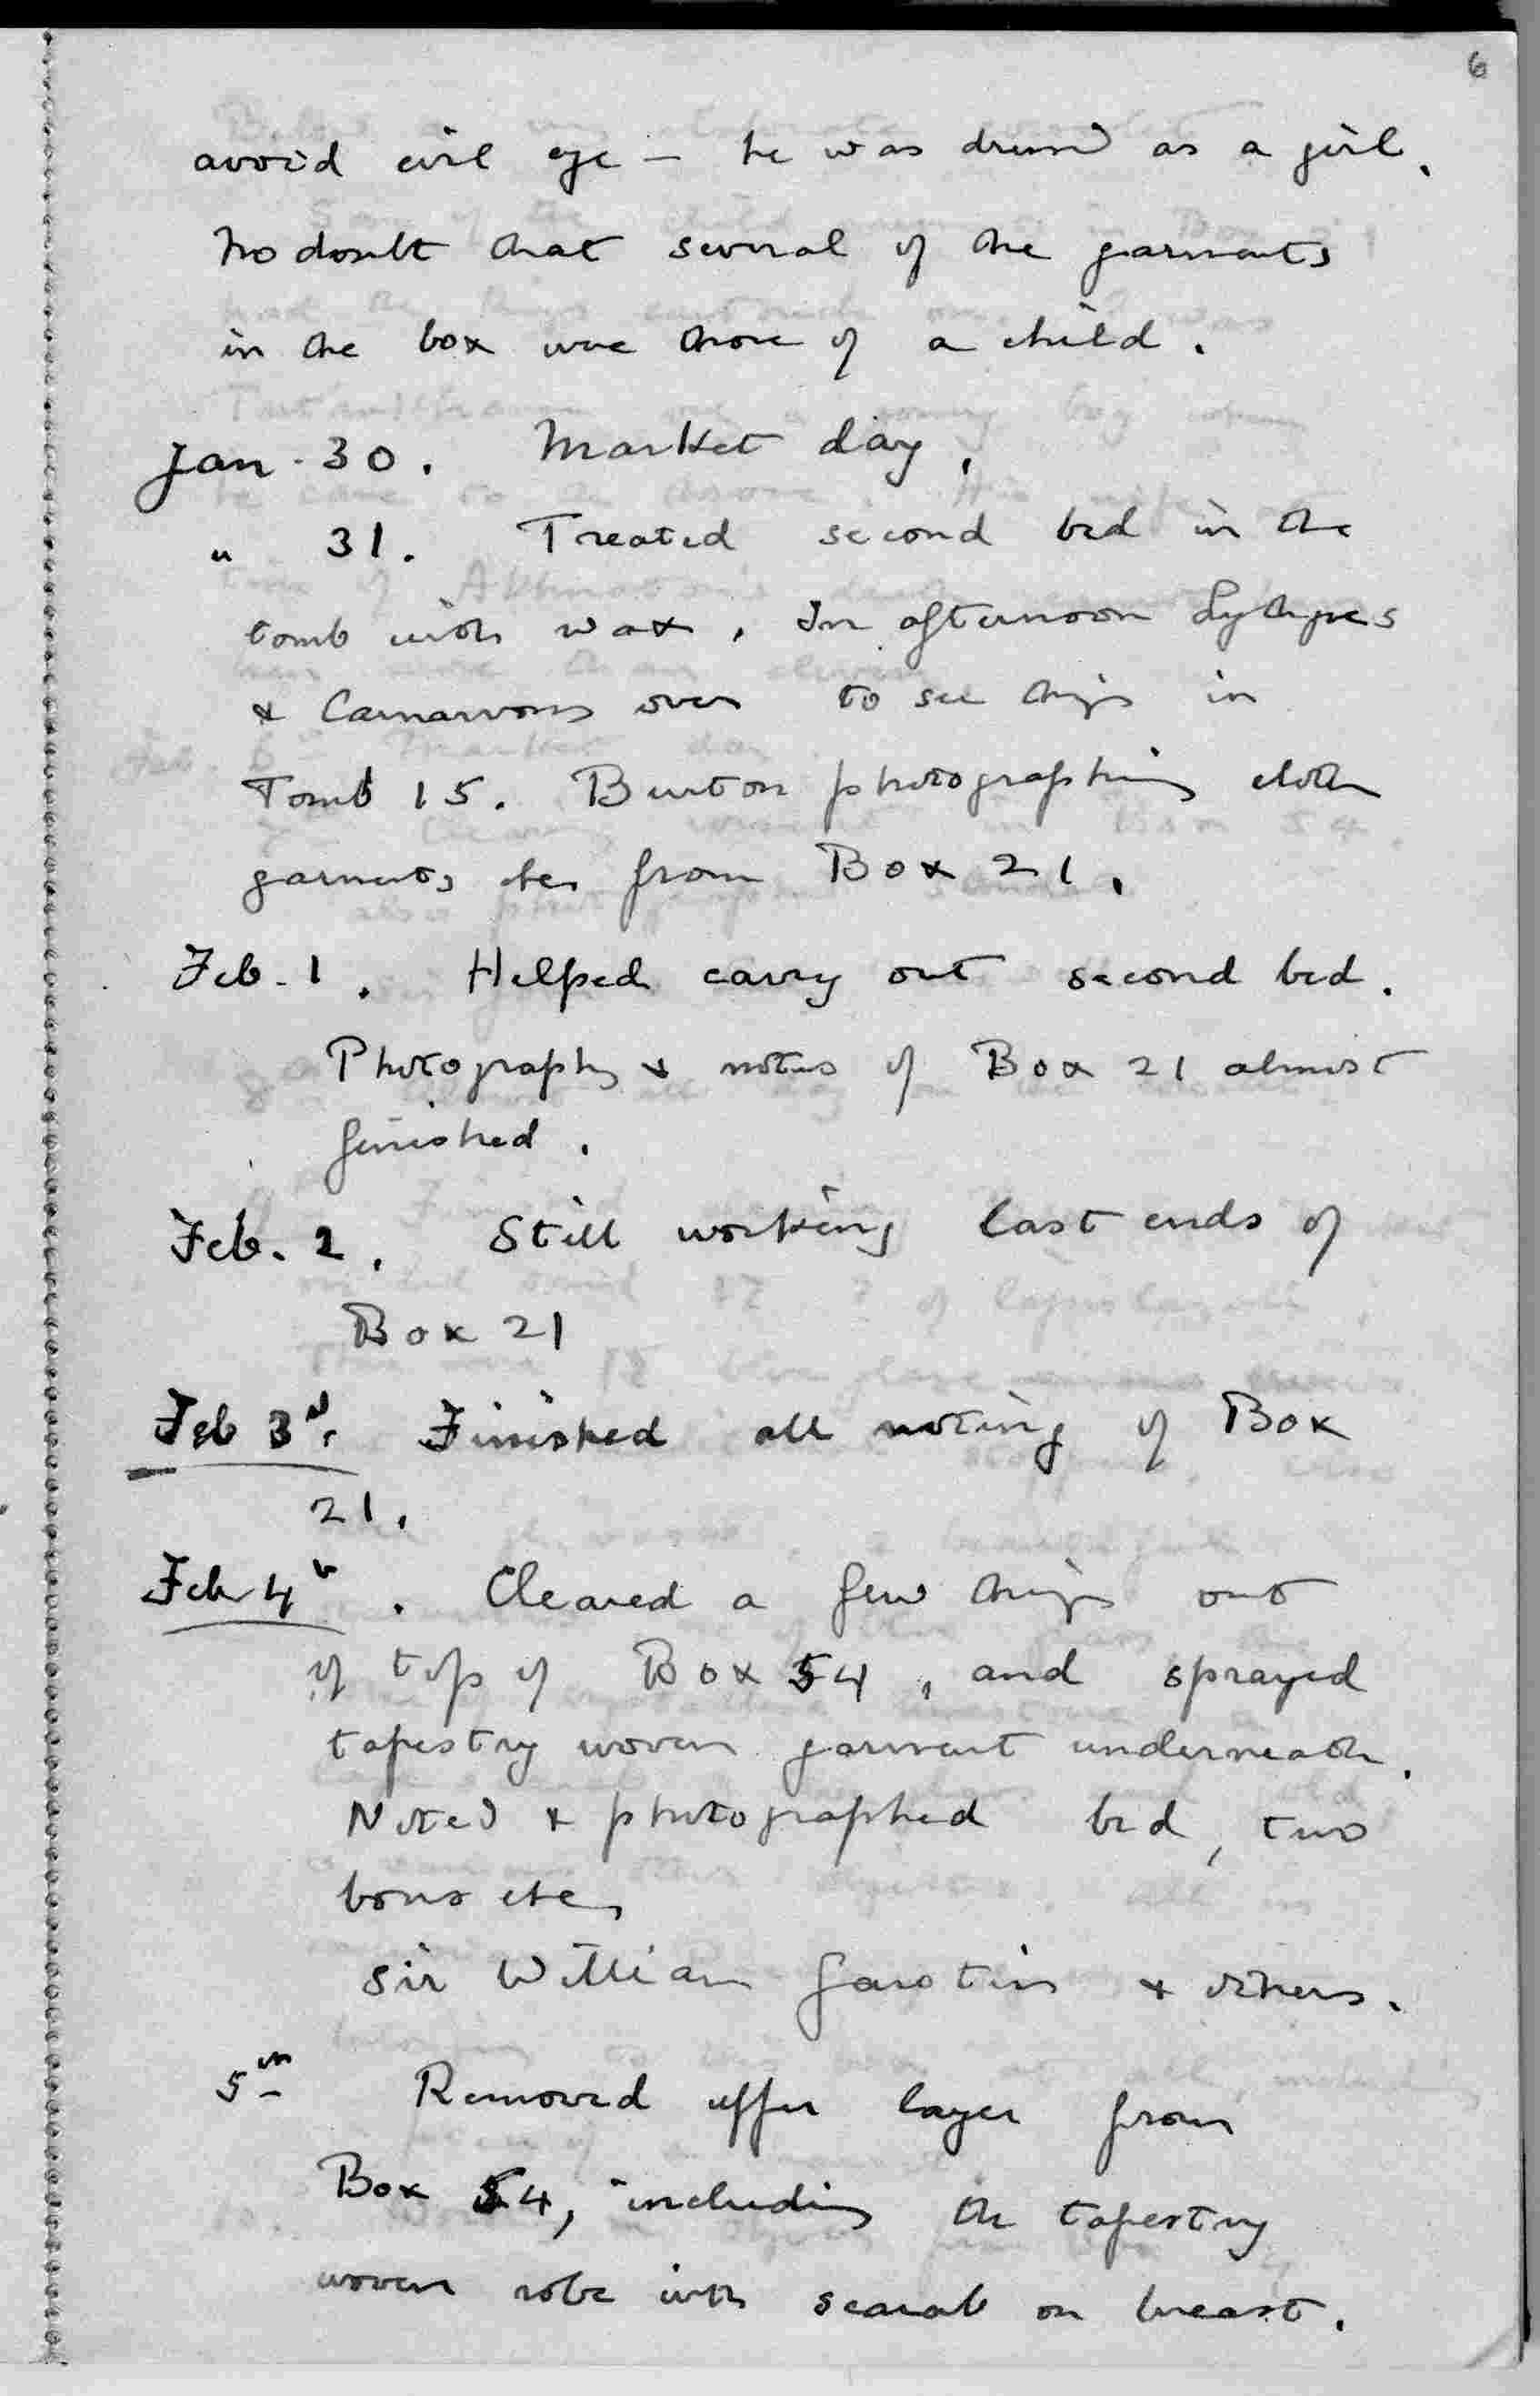 6
avoid evil eye — he was dressed as a girl.
No doubt that several of the garments
in the box were those of a child.
Jan. 30. Market day.
" 31. Treated second bed in the
tomb with wax. In afternoon Lythgoes
& Carnarvons over to see things in
Tomb 15. Burton photographing cloth
garments etc from Box 21.
Feb. 1. Helped carry out second bed.
Photographs & notes of Box 21 almost
finished.
Feb. 2. Still working last ends of
Box 21
Feb 3rd. Finished all noting of Box
21.
Feb 4th. Cleared a few things out
of top of Box 54, and sprayed
tapestry woven garment underneath.
Noted & photographed bed, two
bows etc
Sir William Garstin & others.
5th Removed upper layer from
Box 54, including the tapestry
woven robe with scarab on breast.